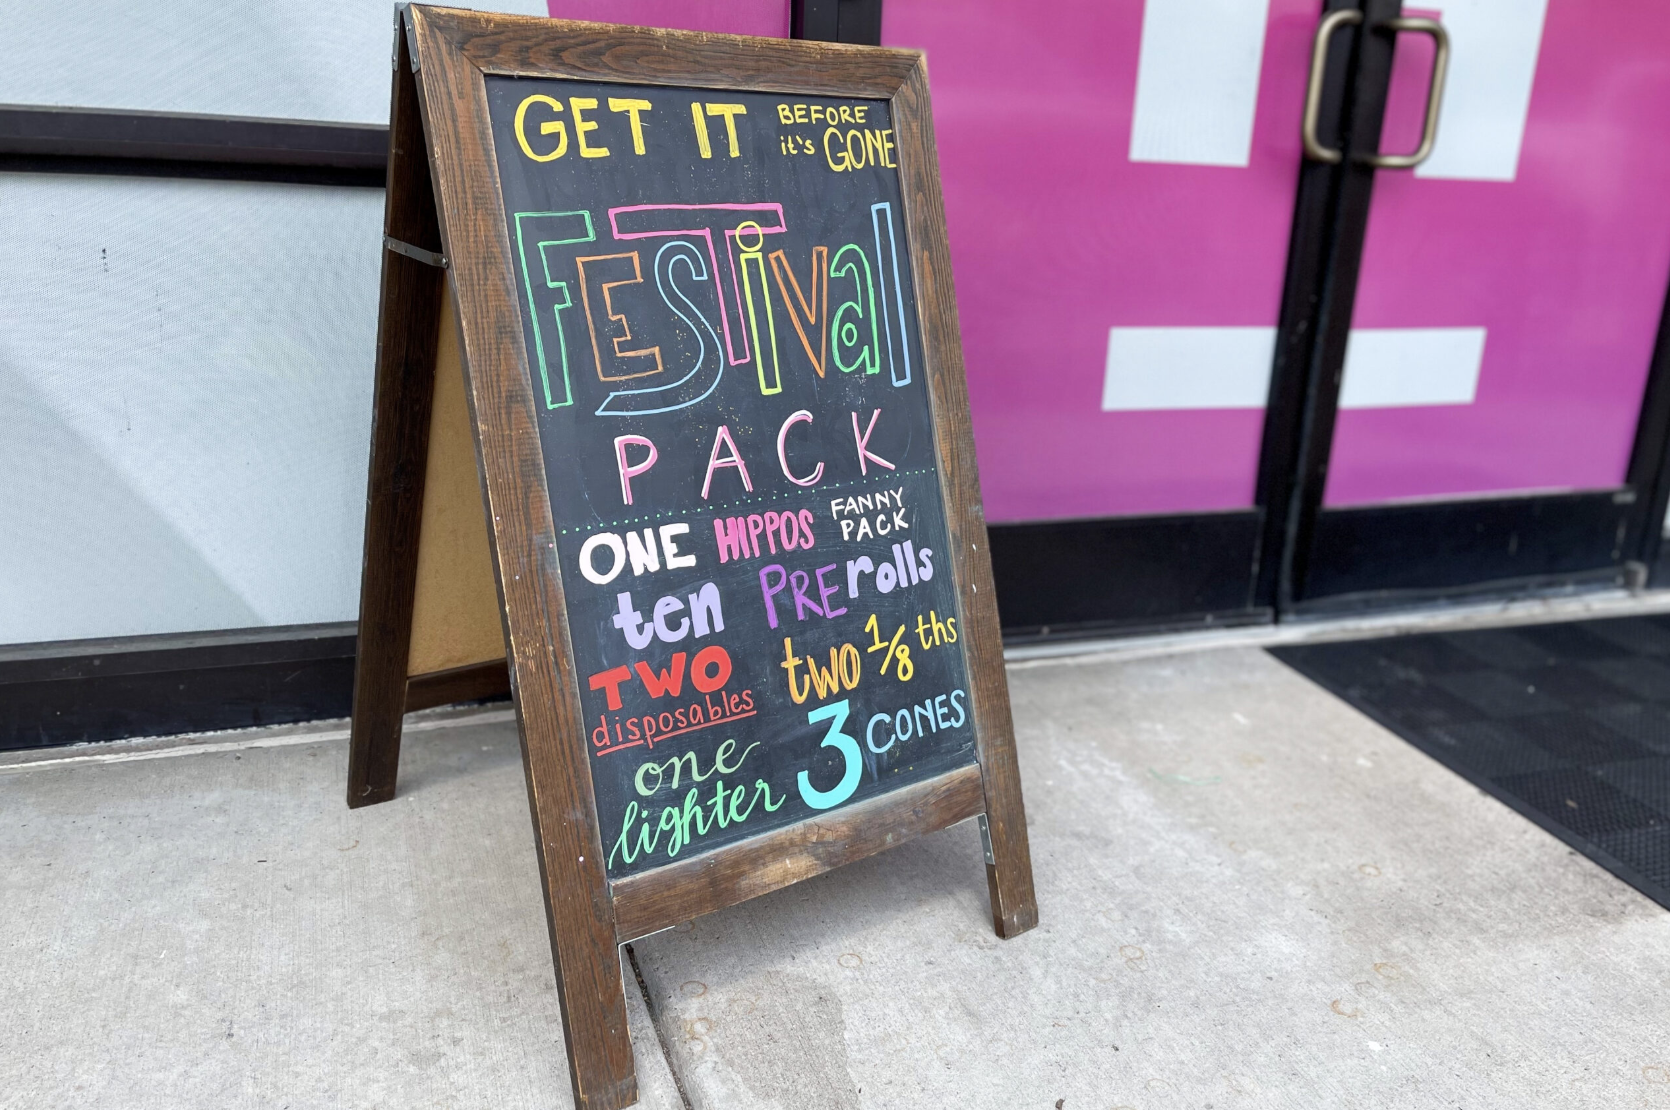 GET IT BEFORE it's GONE
FESTival
PACK
ONE HIPPOS FANNY PACK
ten PRErolls
TWO disposables
two 1/8ths
one lighter
3 CONES